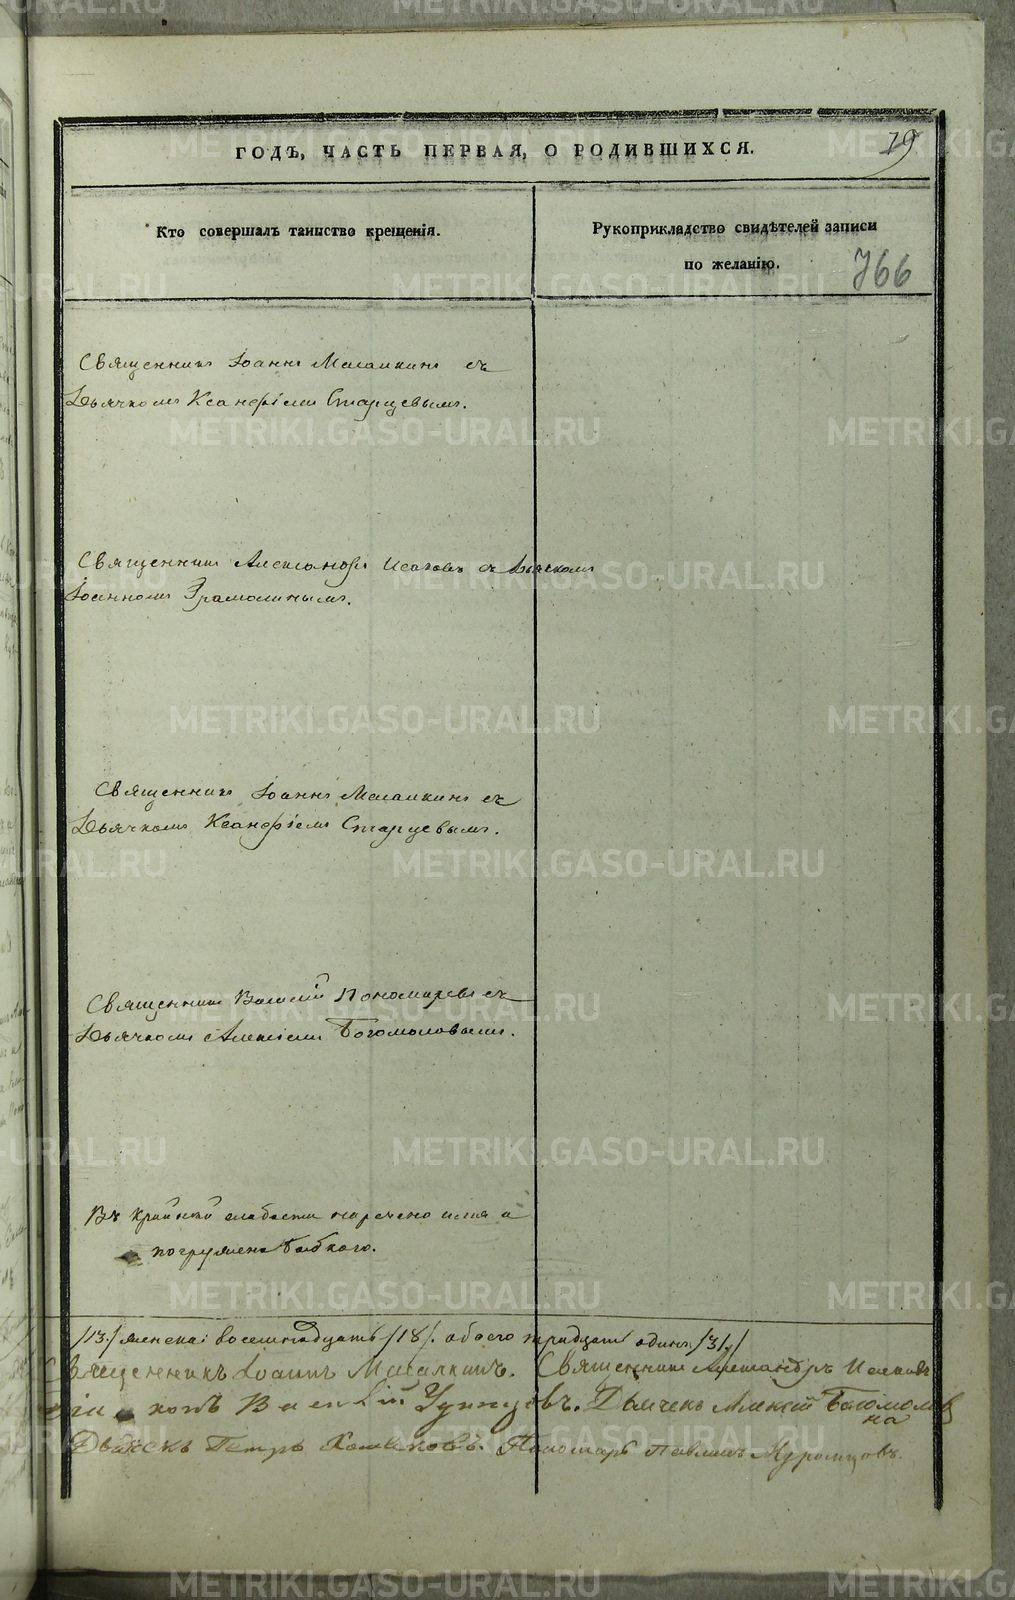 METRIKI.GASO-URAL.RU
ГОДЪ, ЧАСТЬ ПЕРВАЯ, О РОДИВШИХСЯ.
79
Кто совершалъ таинство крещенія.
Рукоприкладство свидѣтелей записи
по желанію.
766
Священникъ Іоаннъ Масалкинъ съ
Дьячкомъ Ксанѳіемъ Старцевымъ.
Священникъ Александръ Исаковъ съ Дьячкомъ
Іоанномъ Эрамолинымъ.
Священникъ Іоаннъ Масалкинъ съ
Дьячкомъ Ксанѳіемъ Старцевымъ.
Священникъ Василій Пономаревъ съ
Дьячкомъ Алексіемъ Богомоловымъ.
Въ крайней слабости наречено имя и
погружено бабкою.
/13./ женска: восемнадцать /18/. обоего тридцать одинъ. /31/
Священникъ Іоаннъ Масалкинъ. Священникъ Александръ Исаковъ
Василій Дьячекъ Алексій Богомоловъ
на
Дьячекъ Петръ Хомяковъ. Пономарь Павлинъ Муромцовъ.